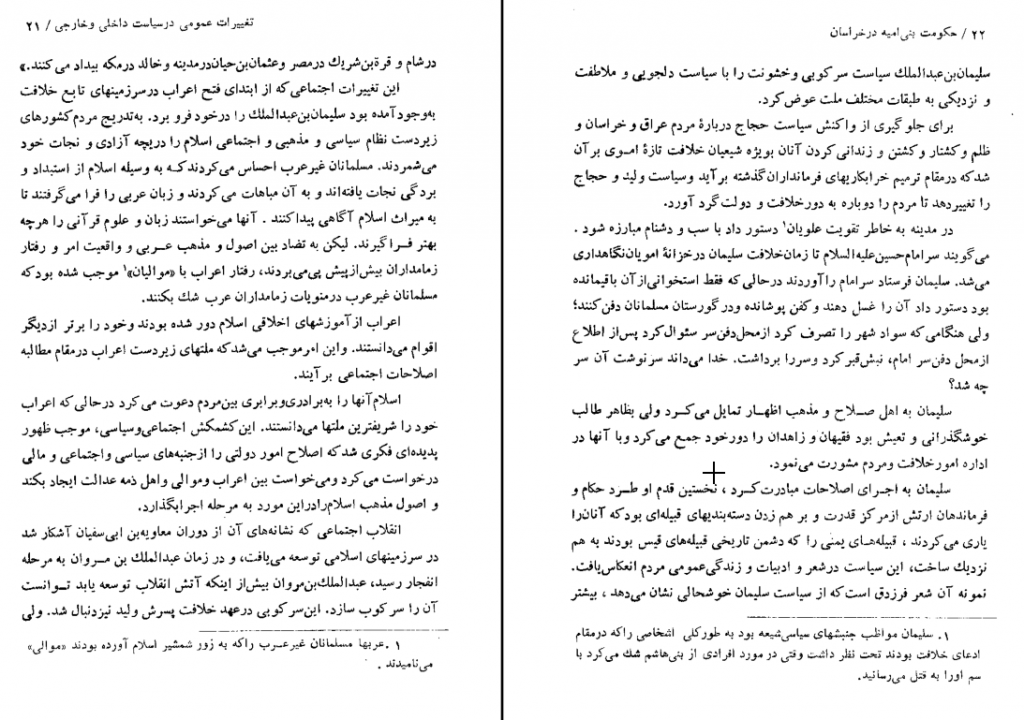 تغییرات عمومی درسیاست داخلی وخارجی / ۲۱
درشام و قرة‌بن‌شریك درمصر وعثمان‌بن‌حیان‌درمدینه وخالد درمکه بیداد می‌کنند.»
این تغییرات اجتماعی‌که از ابتدای فتح اعراب درسرزمینهای تابع خلافت
به‌وجودآمده بود سلیمان‌بن‌عبدالملك را درخود فرو برد. به‌تدریج مردم‌کشورهای
زیردست نظام سیاسی و مذهبی و اجتماعی اسلام را دریچه آزادی و نجات خود
می‌شمردند. مسلمانان غیرعرب احساس می‌کردندکه به وسیله اسلام از استبداد و
بردگی نجات یافته‌اند و به آن مباهات می‌کردند و زبان عربی را فرا می‌گرفتند تا
به میراث اسلام آگاهی پیداکنند. آنها می‌خواستند زبان و علوم قرآنی را هرچه
بهتر فراگیرند. لیکن به تضاد بین اصول و مذهب عربی و واقعیت امر و رفتار
زمامداران بیش‌ازپیش پی‌می‌بردند، رفتار اعراب با «موالیان»۱ موجب شده بودکه
مسلمانان غیرعرب درمنویات زمامداران عرب شك بکنند.
اعراب ازآموزشهای اخلاقی اسلام دور شده بودند وخود را برتر ازدیگر
اقوام می‌دانستند. واین امرموجب می‌شدکه ملتهای زیردست اعراب درمقام مطالبه
اصلاحات اجتماعی برآیند.
اسلام‌آنها را به‌برادری‌وبرابری بین‌مردم دعوت می‌کرد درحالی‌که اعراب
خود را شریفترین ملتها می‌دانستند. این‌کشمکش اجتماعی‌وسیاسی، موجب ظهور
پدیده‌ای فکری شدکه اصلاح امور دولتی را ازجنبه‌های سیاسی واجتماعی و مالی
درخواست می‌کرد ومی‌خواست بین اعراب وموالی واهل ذمه عدالت ایجاد بکند
و اصول مذهب اسلام‌رادراین مورد به مرحله اجرابگذارد.
انقلاب اجتماعی که نشانه‌های آن از دوران معاویه‌بن‌ابی‌سفیان آشکار شد
در سرزمینهای اسلامی توسعه می‌یافت، و در زمان عبدالملك بن مروان به مرحله
انفجار رسید، عبدالملك‌بن‌مروان بیش‌از اینکه آتش انقلاب توسعه یابد توانست
آن را سرکوب سازد. این‌سرکوبی‌درعهد خلافت پسرش ولید نیزدنبال شد. ولی
۱ .عربها مسلمانان غیرعرب راکه به زور شمشیر اسلام آورده بودند «موالی»
می‌نامیدند .
۲۲ / حکومت بنی‌امیه درخراسان
سلیمان‌بن‌عبدالملك سیاست سرکوبی وخشونت را با سیاست دلجویی و ملاطفت
و نزدیکی به طبقات مختلف ملت عوض‌کرد.
برای جلوگیری از واکنش سیاست حجاج دربارهٔ مردم عراق و خراسان و
ظلم وکشتار وکشتن و زندانی‌کردن آنان بویژه شیعیان خلافت تازهٔ اموی برآن
شدکه درمقام ترمیم خرابکاریهای فرمانداران‌گذشته برآید وسیاست ولید و حجاج
را تغییردهد تا مردم را دوباره به دورخلافت و دولت‌گرد آورد.
در مدینه به خاطر تقویت علویان۱ دستور داد با سب و دشنام مبارزه شود .
می‌گویند سرامام‌حسین‌علیه‌السلام تا زمان‌خلافت سلیمان درخزانهٔ امویان‌نگاهداری
می‌شد. سلیمان فرستاد سرامام را آوردند درحالی‌که فقط استخوانی‌ازآن باقیمانده
بود دستور داد آن را غسل دهند وکفن پوشانده ودرگورستان مسلمانان دفن‌کنند؛
ولی هنگامی‌که سواد شهر را تصرف کرد ازمحل‌دفن‌سر سئوال‌کرد پس‌از اطلاع
ازمحل دفن‌سر امام، نبش‌قبرکرد وسررا برداشت. خدا می‌داند سرنوشت آن سر
چه شد؟
سلیمان به اهل صلاح و مذهب اظهار تمایل می‌کرد ولی بظاهر طالب
خوشگذرانی و تعیش بود فقیهان و زاهدان را دورخود جمع می‌کرد وبا آنها در
اداره امورخلافت ومردم مشورت می‌نمود.
سلیمان به اجرای اصلاحات مبادرت‌کرد ، نخستین قدم او طرد حکام و
فرماندهان ارتش ازمرکز قدرت و بر هم زدن دسته‌بندیهای قبیله‌ای بودکه آنان‌را
یاری می‌کردند ، قبیله‌های یمنی را که دشمن تاریخی قبیله‌های قیس بودند به هم
نزدیك ساخت، این سیاست درشعر و ادبیات و زندگی‌عمومی مردم انعکاس‌یافت.
نمونه آن شعر فرزدق است‌که از سیاست سلیمان خوشحالی نشان می‌دهد ، بیشتر
۱. سلیمان مواظب جنبشهای سیاسی‌شیعه بود به طورکلی اشخاصی راکه درمقام
ادعای خلافت بودند تحت نظر داشت وقتی در مورد افرادی از بنی‌هاشم شك می‌کرد با
سم اورا به قتل می‌رسانید.